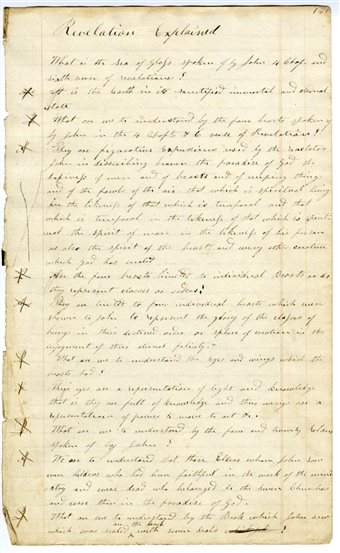 Revelation Explained
What is the Sea of Glass spoken of by John 4 Chap. and
sixth verse of revelations?
it is the Earth in its sanctified immortal and eternal
state
What are we to understand by the four beasts spoken of
by John in the 4 Chapt & 6 verse of Revelations?
They are figurative expressions used by the revelator
John in discribing heaven the paradise of God the
hapiness of man and of beasts and of creeping things
and of the fowl of the air that which is spiritual being
in the likeness of that which is temporal and that
which is temporal in the likeness of that which is spirit
ual the spirit of man in the likeness of his person
as also the spirit of the beast and every other creature
which God has created
Are the four beasts limited to individual beasts or do
they represent classes or orders?
They are limited to four individual beasts which were
shewn to John to represent the glory of the classes of
beings in their destined order or sphere of creation in the
enjoyment of their eternal felicity.
What are we to understand the eyes and wings which the
beasts had?
Their eyes are a representation of light and knowledge
that is they are full of knowledge and their wings are a
representation of power to move to act &c.
What are we to understand by the four and twenty Elders
spoken of by John?
We are to understand that these Elders whom John saw
were Elders who had been faithful in the work of the mini
stry and were dead who belonged to the seven Churches
and were then in the paradise of God.
What are we to understand by the Book which John saw
which was sealed on the back with seven seals ?